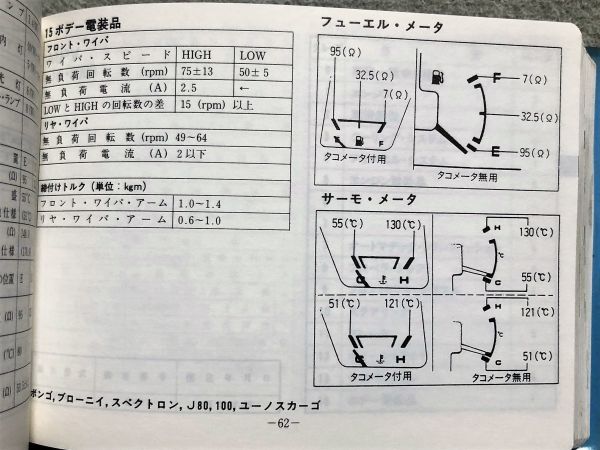 15 ボデー電装品
フロント・ワイパ
ワイパ・スピード HIGH LOW
無負荷回転数 (rpm) 75±13 50±5
無負荷電流 (A) 2.5 ←
LOWとHIGHの回転数の差 15 (rpm) 以上
リヤ・ワイパ
無負荷回転数 (rpm) 49~64
無負荷電流 (A) 2以下
締付けトルク (単位：kgm)
フロント・ワイパ・アーム 1.0~1.4
リヤ・ワイパ・アーム 0.6~1.0
フューエル・メータ
95(Ω)
32.5(Ω)
7(Ω)
F
タコメータ付用
F 7(Ω)
32.5(Ω)
E 95(Ω)
タコメータ無用
サーモ・メータ
55(℃) 130(℃)
C H
H 130(℃)
℃
C 55(℃)
51(℃) 121(℃)
C H
タコメータ付用
H 121(℃)
℃
C 51(℃)
タコメータ無用
ボンゴ,ブローニイ,スペクトロン,J80,100,ユーノスカーゴ
-62-